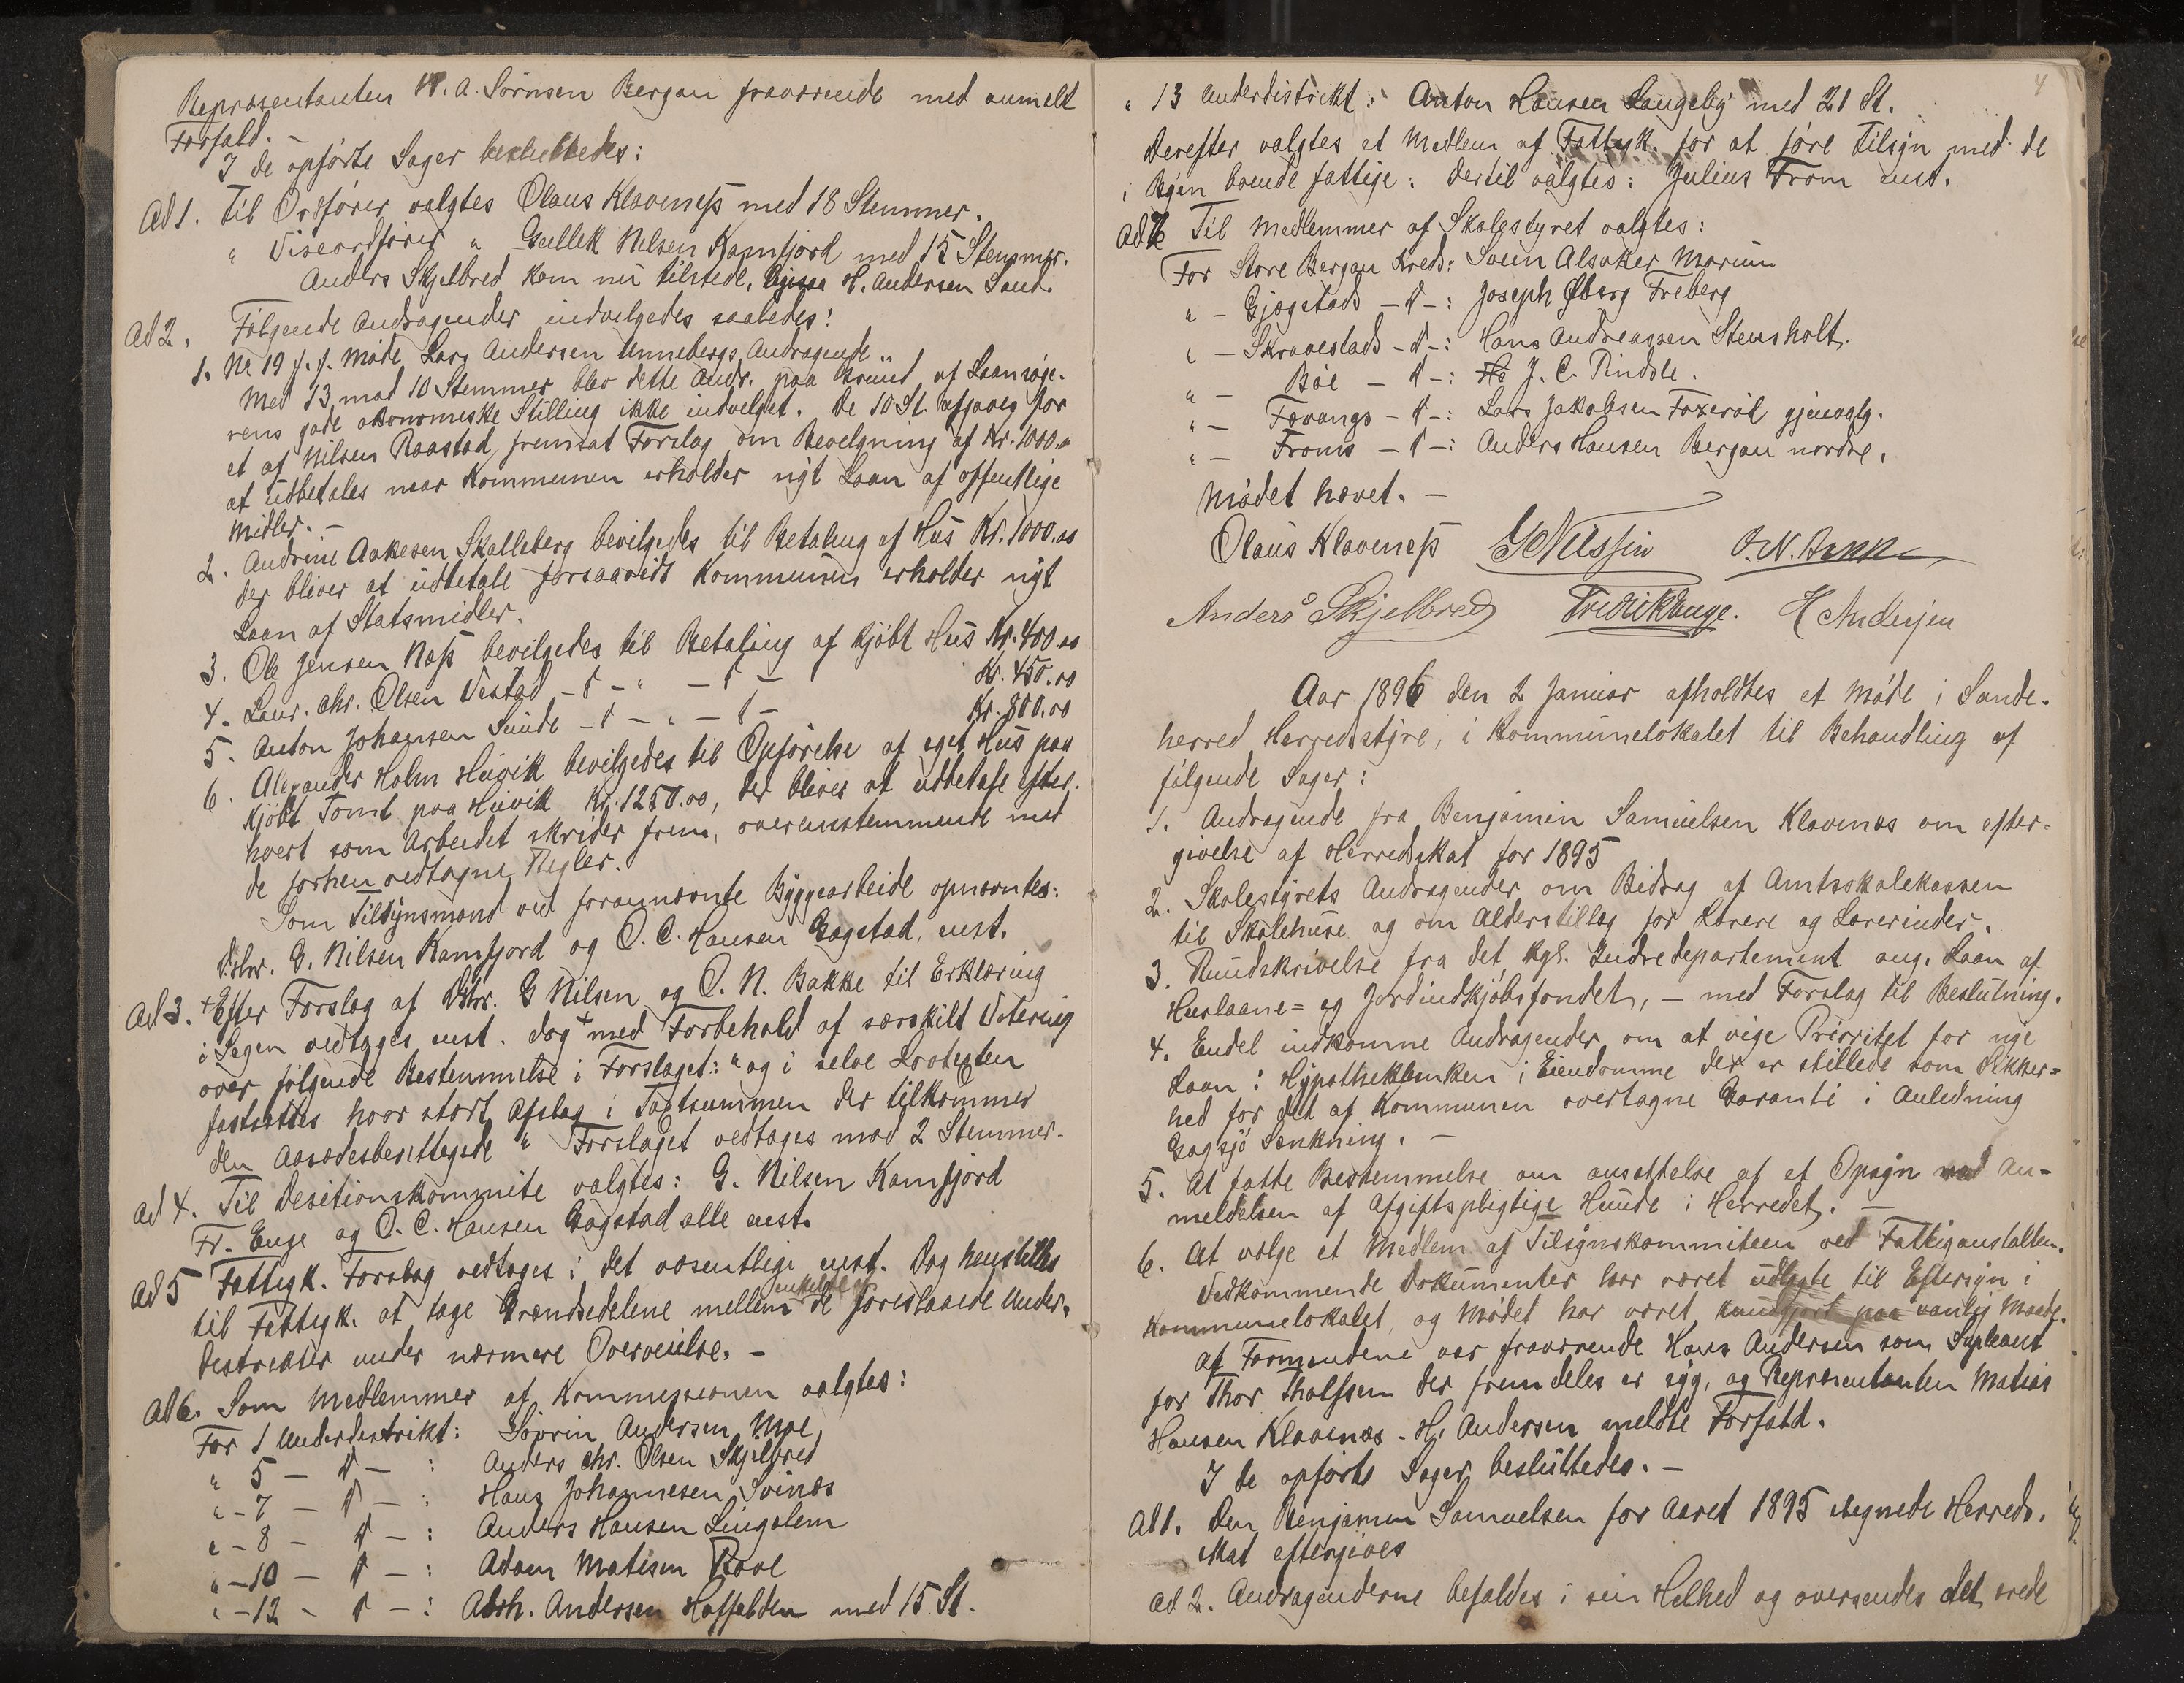 Repræsentanten A. Sørnsen Bergan fraværende med anmelt
Forfald. —
I de opførte Sager besluttedes:
Ad 1. Til Ordfører valgtes Olaus Klaveness med 18 Stemmer.
" Viseordfører " Gullik Nilsen Kamfjord med 15 Stemmer.
Anders Skjelbred kom nu tilstede, H. Andersen Sand.
Ad 2. Følgende Andragender indvilgedes saaledes:
1. No 19 f. f. Møde, Lars Andersen Unnebergs Andragende
Med 13 mod 10 Stemmer blev dette Andr. paa Grund af Laansøge-
rens gode økonomiske Stilling ikke indvilget. De 10 St. afgaves for
et af Nilsen Raastad fremsat Forslag om Bevilgning af Kr. 1000.00
at udbetales naar Kommunen erholder nyt Laan af offentlige
Midler. —
2. Andrine Aakesen Skalleberg bevilgedes til Betaling af Hus Kr. 1000.00
der bliver at udbetale forsaavidt Kommunen erholder nyt
Laan af Statsmidler.
3. Ole Jensen Næss bevilgedes til Betaling af kjøbt Hus Kr. 400.00
4. Laur. Chr. Olsen Vestad — d — " — d — Kr. 450.00
5. Anton Johansen Sunde — d — " — d — Kr. 800.00
6. Alexander Holm Huvik bevilgedes til Opførelse af eget Hus paa
kjøbt Tomt paa Huvik Kr. 1250.00, der bliver at udbetale efter-
hvert som Arbeidet skrider frem, overensstemmende med
de forhen vedtagne Regler.
Som Tilsynsmænd ved forannævnte Byggearbeide opnævntes:
D'Hrr. G. Nilsen Kamfjord og O. C. Hansen Gogstad, enst.
Ad 3. + Efter Forslag af D'Hrr. G Nilsen og O. N. Bakke til Erklæring
i Sagen vedtoges enst. dog + med Forbehold af særskilt Votering
over følgende Bestemmelse i Forslaget: " og i selve Lovteksten
fastsættes hvor stort Afslag i Taxtsummen der tilkommer
den Aasædesberettigede " Forslaget vedtages mod 2 Stemmer.
ad 4. Til Desitionskommite valgtes: G. Nilsen Kamfjord
Fr. Enge og O. C. Hansen Gogstad alle enst.
Ad 5 Fattigk. Forslag vedtoges i det væsentlige enst. Dog henstilles
til Fattigk. at tage Grændsedelene mellem enkelte af de foreslaaede Under-
destrikter under nærmere Overveielse. —
Ad 6. Som Medlemmer af Kommissionen valgtes:
For 1 Underdestrikt: Søvrin Andersen Moe
" 5 — d — : Anders Chr. Olsen Skjelbred
" - 7 — d — : Hans Johannesen Svinæs
" - 8 — d — : Anders Hansen Lingelem
" - 10 — d — : Adam Matisen Rove
" - 12 - d — : Abrh. Andersen Haffalden med 15 St.
4
" 13 Underdistrikt: Anton Hansen Langeby med 21 St.
Derefter valgtes et Medlem af Fattigk. for at føre Tilsyn med de
i Byen boende fattige: Dertil valgtes: Julius From enst.
Ad 7 Til Medlemmer af Skolestyret valgtes:
For Store Bergan Kreds: Svein Alsaker Marum
" — Gjøgstads — d —: Joseph Øberg Freberg
" — Skravestads — d —: Hans Andreassen Stensholt.
" — Bøe — d —: J. C. Pindsle.
" — Fævangs — d —: Lars Jakobsen Foxerød gjenvalg.
" — Froms — d —: Anders Hansen Bergan nordre.
Mødet hævet. —
Olaus Klaveness G Nilssen O. N. Bakke
Anders Skjelbred Fredrik Enge. H Andersen
Aar 1896 den 2 Januar afholdtes et Møde i Sande-
herred Herredsstyre, i Kommunelokalet til Behandling af
følgende Sager:
1. Andragende fra Benjamin Samuelsen Klavenæs om efter-
givelse af Herredsskat for 1895
2. Skolestyrets Andragender om Bidrag af Amtsskolekassen
til Skolehuse og om Alderstillæg for Lærere og Lærerinder.
3. Rundskrivelse fra det Kgl. Indredepartement ang. Laan af
Huslaane= og Jordindkjøbsfondet, — med Forslag til Beslutning.
4. Endel indkomne Andragender om at vige Prioritet for nye
Laan i Hypothekbanken i Eiendomme der er stillede som Sikker=
hed for det af Kommunen overtagne Garanti i Anledning
Gogsjø Sænkning. —
5. At fatte Bestemmelse om ansættelse af et Opsyn med An-
meldelsen af Afgiftspligtige Hunde i Herredet. —
6. At vælge et Medlem af Tilsynskommiteen ved Fattiganstalten.
Vedkommende Dokumenter har været udlagte til Eftersyn i
Kommunelokalet, og Mødet har været kundgjort paa vanlig Maade.
Af Formændene var fraværende Hans Andersen som Supleant
for Thor Tholfsen der fremdeles er syg, og Repræsentanten Matias
Hansen Klavenæs - H. Andersen meldte Forfald.
I de opførte Sager besluttedes. —
Ad 1. Den Benjamin Samuelsen for Aaret 1895 ilegnede Herreds-
skat eftergives
ad 2. Andragenderne befaldes i sin Helhed og oversendes det